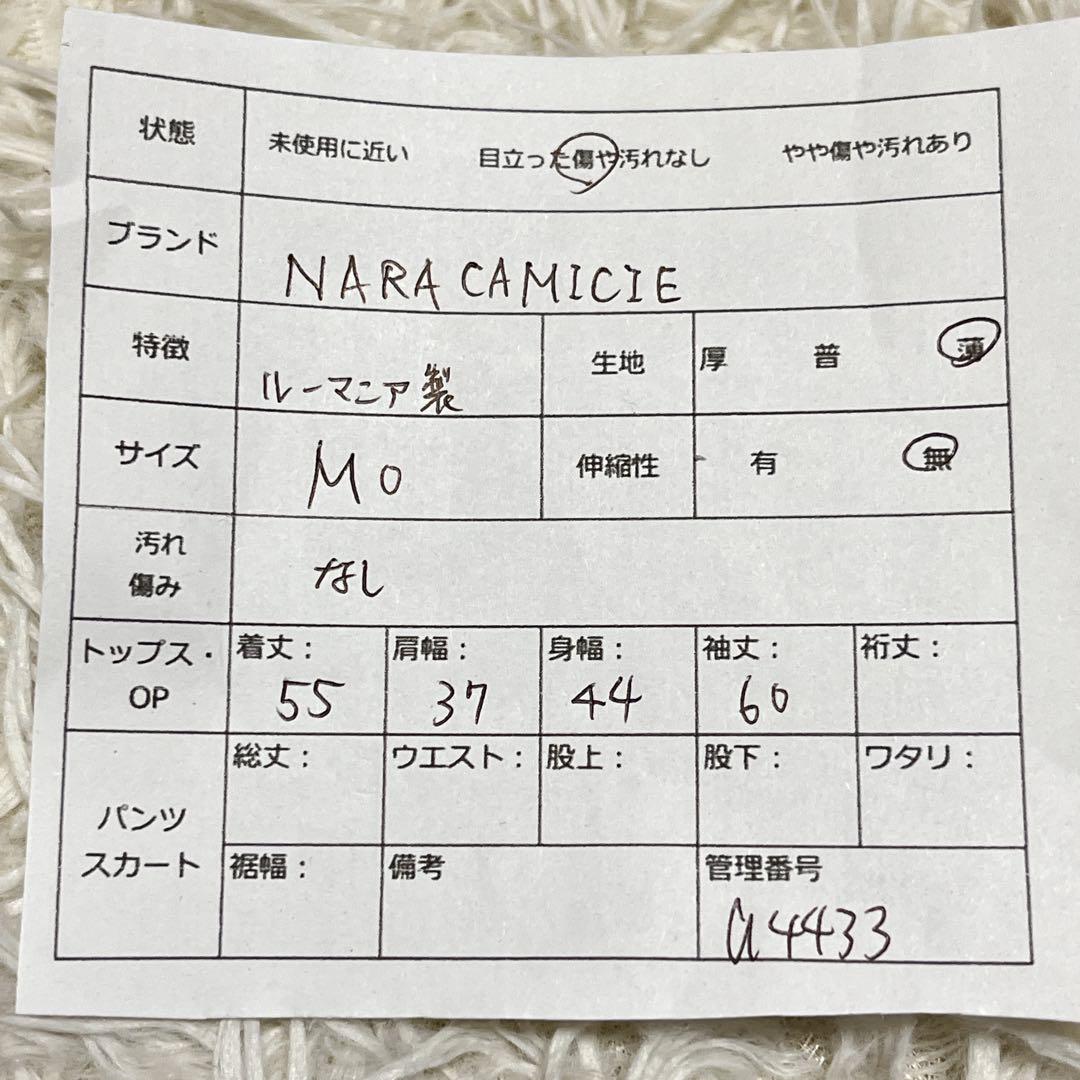 状態 未使用に近い 目立った傷や汚れなし やや傷や汚れあり
ブランド NARA CAMICIE
特徴 ルーマニア製 生地 厚 普 薄
サイズ M0 伸縮性 有 無
汚れ
傷み なし
トップス・
OP
着丈： 肩幅： 身幅： 袖丈： 裄丈：
55 37 44 60
パンツ
スカート
総丈： ウエスト： 股上： 股下： ワタリ：
裾幅： 備考 管理番号
a4433